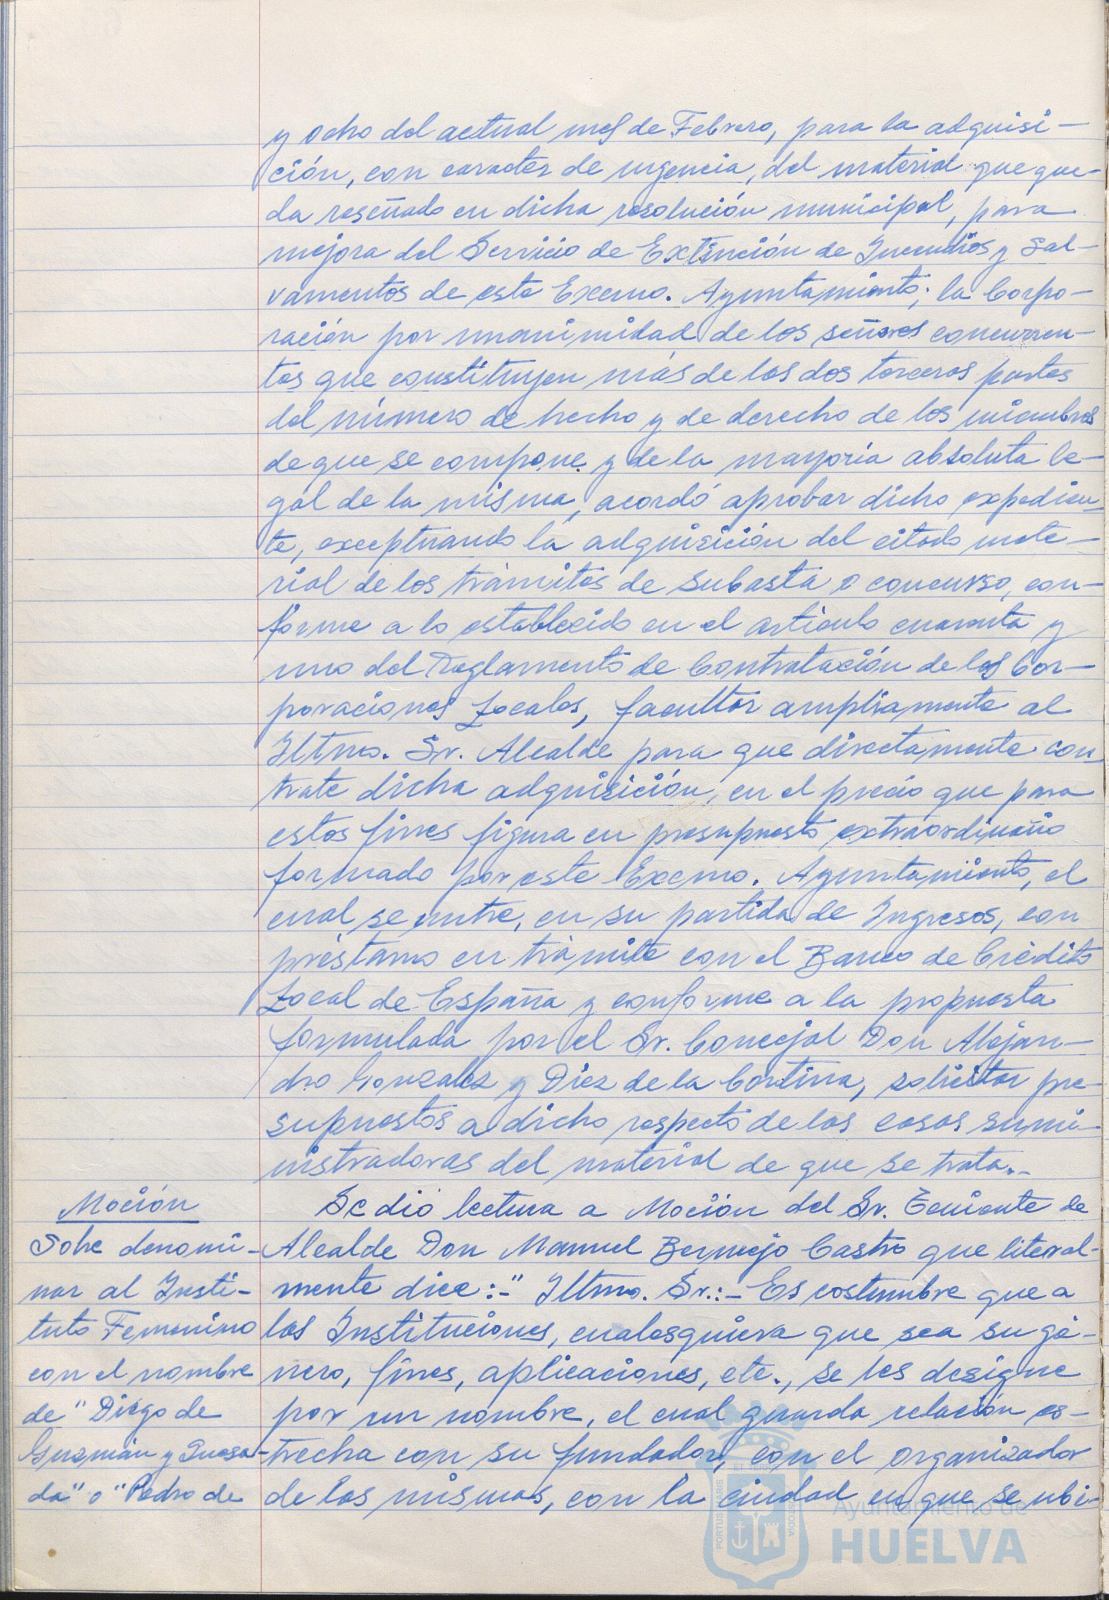 y ocho del actual mes de Febrero, para la adquisi-
ción, con caracter de urgencia, del material que que-
da reseñado en dicha resolución municipal, para
mejora del Servicio de Extinción de Incendios y Sal-
vamentos de este Excmo. Ayuntamiento; la Corpo-
ración por unanimidad de los señores concurren-
tes que constituyen más de las dos terceras partes
del número de hecho y de derecho de los miembros
de que se compone y de la mayoria absoluta le-
gal de la misma, acordó aprobar dicho expedien-
te, exceptuando la adquisición del citado mate-
rial de los trámites de subasta o concurso, con-
forme a lo establecido en el articulo cuarenta y
uno del Reglamento de Contratación de las Cor-
poraciones Locales, facultar ampliamente al
Iltmo. Sr. Alcalde para que directamente con
trate dicha adquisición, en el precio que para
estos fines figura en presupuesto extraordinario
formado por este Excmo. Ayuntamiento, el
cual se nutre, en su partida de Ingresos, con
préstamo en trámite con el Banco de Crédito
Local de España y conforme a la propuesta
formulada por el Sr. Concejal Don Alejan-
dro Gonzalez y Diez de la Cortina, solicitar pre-
supuestos a dicho respecto de las casas sumi-
nistradoras del material de que se trata.-
Moción
Sobre denomi-
nar al Insti-
tuto Femenino
con el nombre
de "Diego de
Guzmán y Quesa-
da" o "Pedro de
Se dió lectura a Moción del Sr. Teniente de
Alcalde Don Manuel Bermejo Castro que literal-
mente dice:-" Iltmo. Sr.:- Es costumbre que a
las Instituciones, cualesquiera que sea su gé-
nero, fines, aplicaciones, etc., se les designe
por un nombre, el cual guarda relación es-
trecha con su fundador, con el organizador
de las mismas, con la ciudad en que se ubi-
Ayuntamiento de
HUELVA